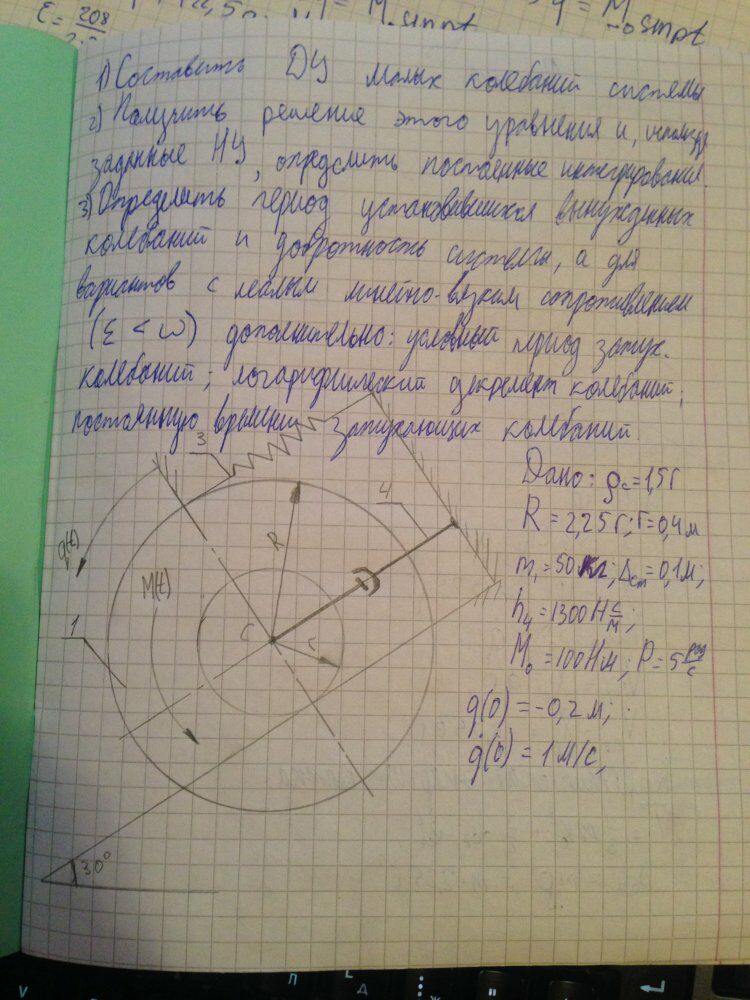 ε = 208
M
sin pt
y = M
sin pt
1) Составить ДУ малых колебаний системы
2) Получить решение этого уравнения и, используя
заданные НУ, определить постоянные интегрирования.
3) Определить период установившихся вынужденных
колебаний и добротность системы, а для
вариантов с малым линейно-вязким сопротивлением
(ε < ω) дополнительно: условный период затух.
колебаний; логарифмический декремент колебаний;
постоянную времени затухающих колебаний.
3
4
q(t)
M(t)
R
C
r
1
30°
Дано: ρc = 1,5r
R = 2,25r; r = 0,4 м
m₁ = 50 кг; Δcт = 0,1 м;
h₄ = 1300 Н с/м;
M₀ = 100 Нм; P = 5 рад/с
q(0) = -0,2 м;
q̇(0) = 1 м/с;